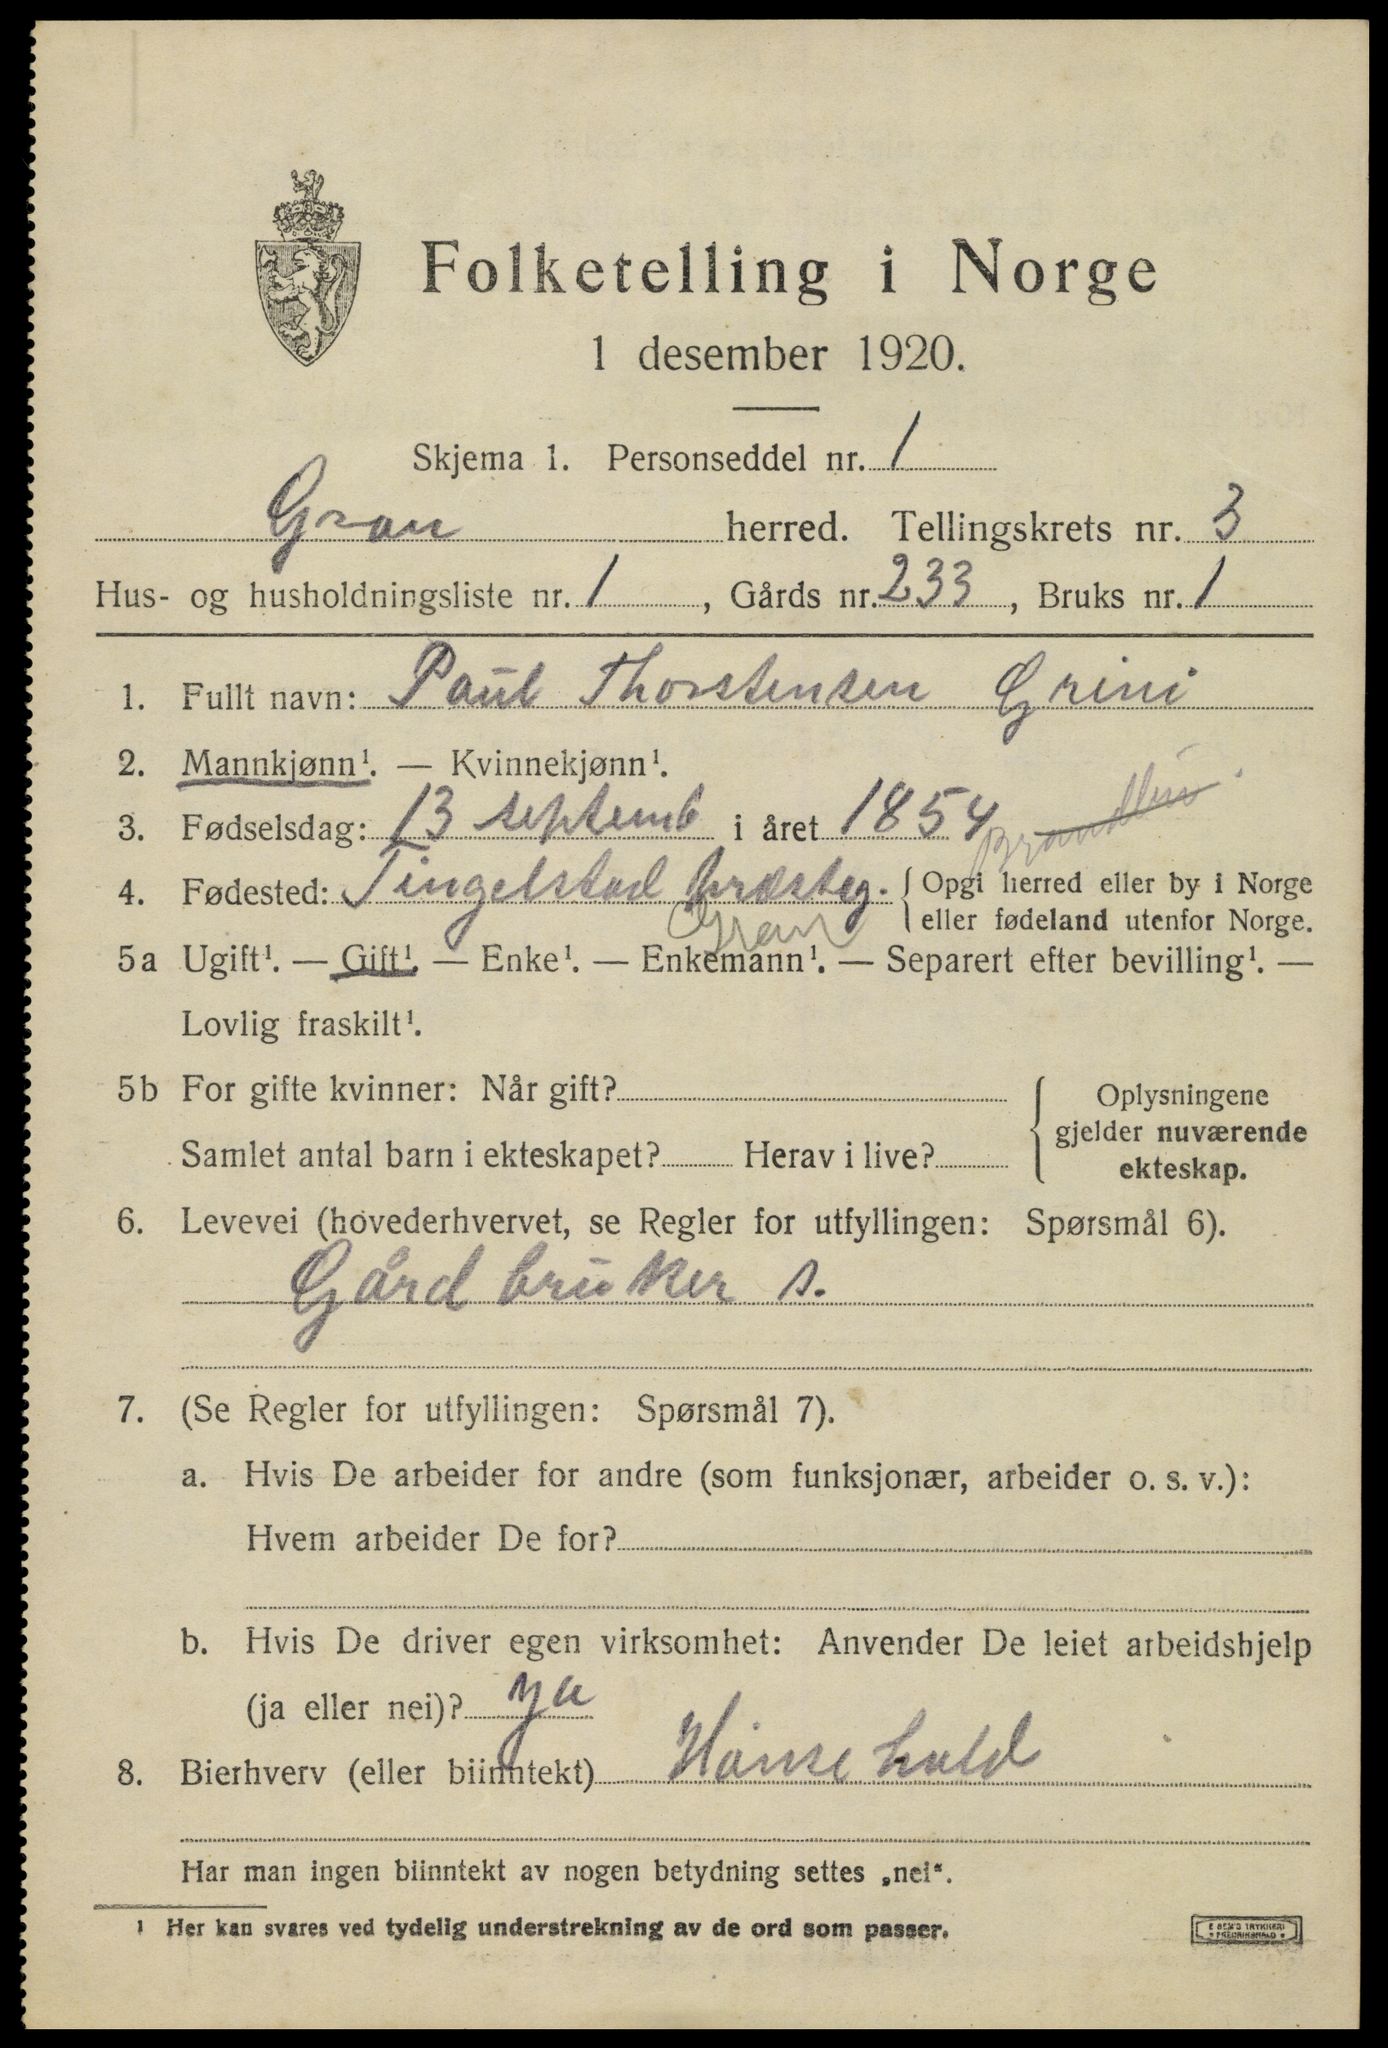 Folketelling i Norge
1 desember 1920.
Skjema 1. Personseddel nr. 1
Gran herred. Tellingskrets nr. 3
Hus- og husholdningsliste nr. 1, Gårds nr. 233, Bruks nr. 1
1. Fullt navn: Paul Thorstensen Grini
2. Mannkjønn¹. — Kvinnekjønn¹.
3. Fødselsdag: 13 septemb i året 1854
4. Fødested: Tingelstad Præsteg. { Opgi herred eller by i Norge
eller fødeland utenfor Norge.
Gran
5a Ugift¹. — Gift¹. — Enke¹. — Enkemann¹. — Separert efter bevilling¹. —
Lovlig fraskilt¹.
5b For gifte kvinner: Når gift?
Samlet antal barn i ekteskapet? Herav i live?
{ Oplysningene
gjelder nuværende
ekteskap.
6. Levevei (hovederhvervet, se Regler for utfyllingen: Spørsmål 6).
Gårdbruker s.
7. (Se Regler for utfyllingen: Spørsmål 7).
a. Hvis De arbeider for andre (som funksjonær, arbeider o. s. v.):
Hvem arbeider De for?
b. Hvis De driver egen virksomhet: Anvender De leiet arbeidshjelp
(ja eller nei)? ja
8. Bierhverv (eller biinntekt) Hönsehold
Har man ingen biinntekt av nogen betydning settes „nei“.
¹ Her kan svares ved tydelig understrekning av de ord som passer.
E SEM'S TRYKKERI
* FREDRIKSHALD *